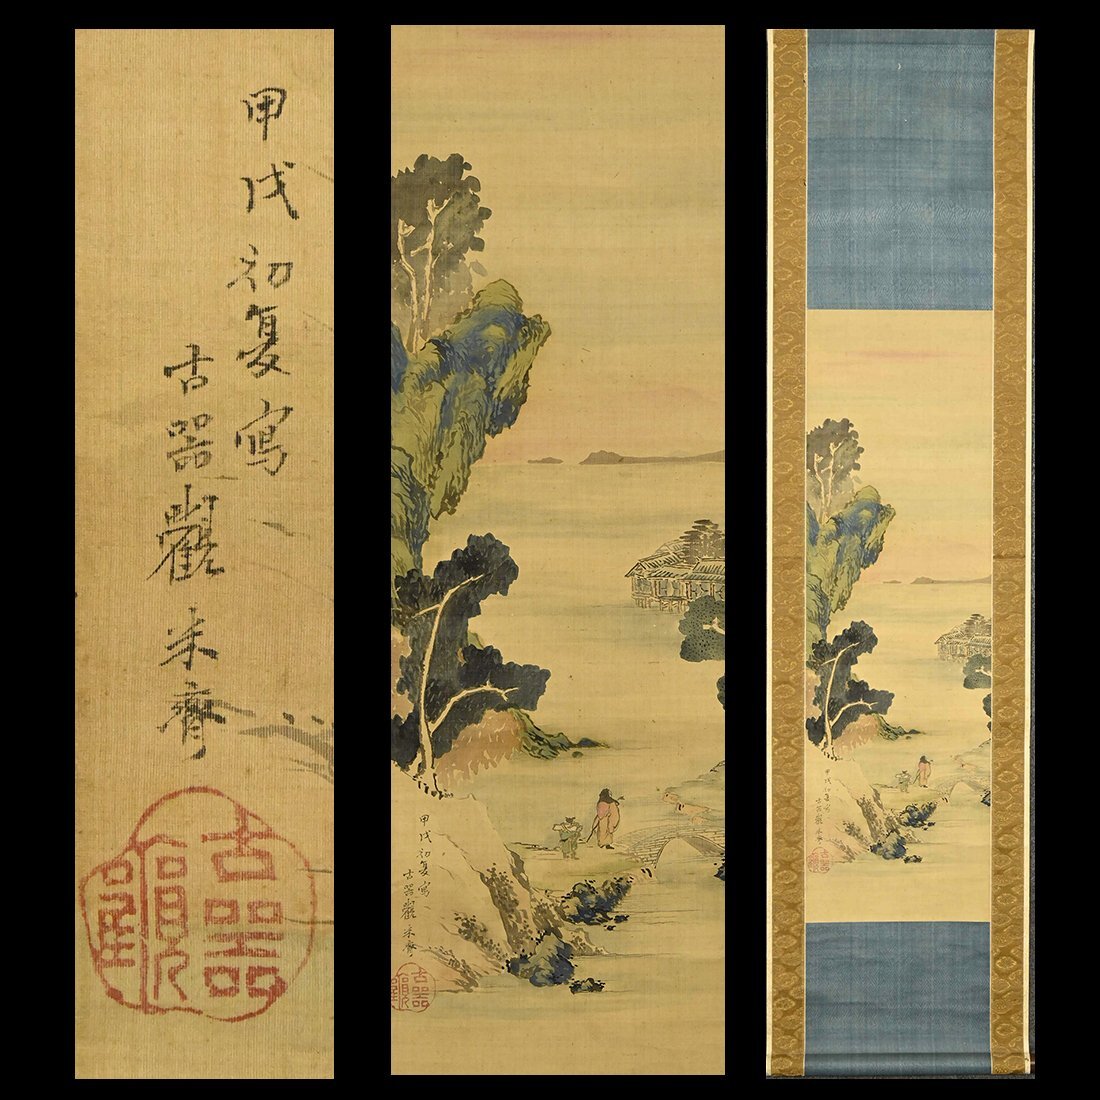 甲戌初夏寫
古器觀米齊
古器
甲戌初夏寫
古器觀米齊
古器
甲戌初夏寫
古器觀米齊
古器